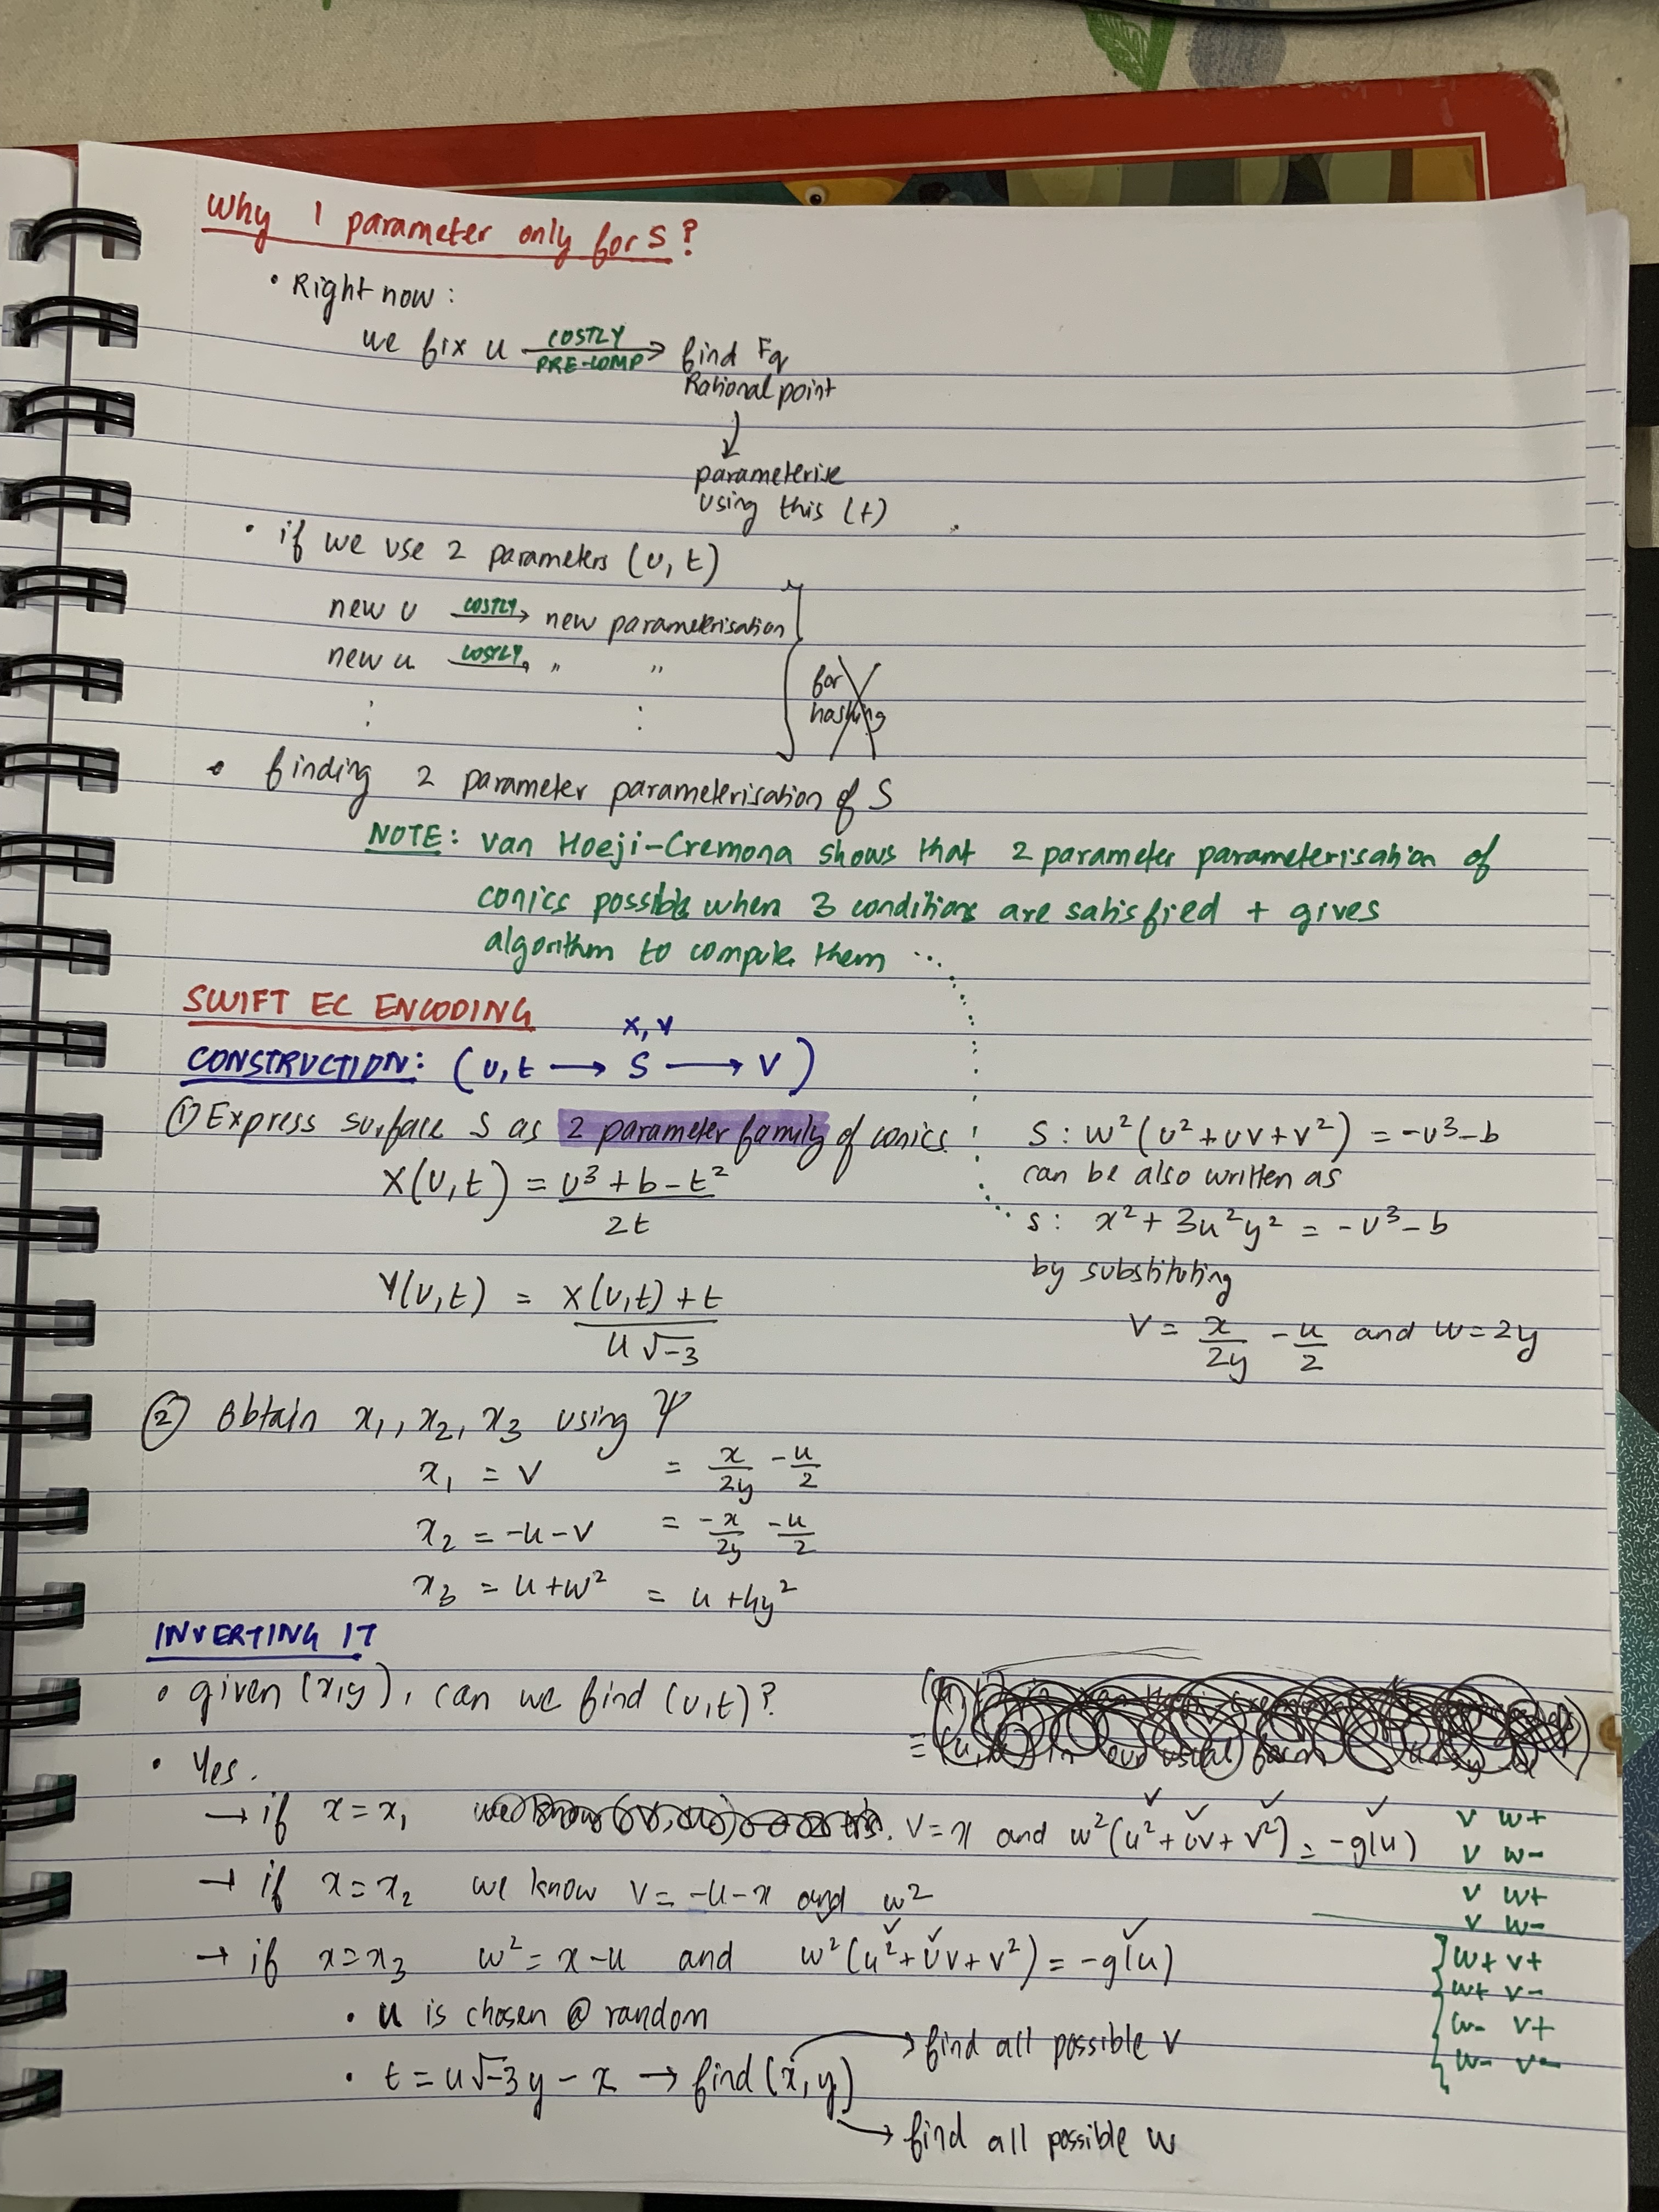 Why 1 parameter only for S?
• Right now:
we fix u COSTLY PRE-COMP → find Fq
Rational point
↓
parameterise
using this (t)
• if we use 2 parameters (u, t)
new u COSTLY → new parameterisation
new u COSTLY → " "
⋮ ⋮
for
hashing
• finding 2 parameter parameterisation of S
NOTE: Van Hoeji-Cremona shows that 2 parameter parameterisation of
conics possible when 3 conditions are satisfied + gives
algorithm to compute them ...
SWIFT EC ENCODING
x, y
CONSTRUCTION: (u, t → S → V)
① Express surface S as 2 parameter family of conics
X(u, t) = (u³ + b - t²) / 2t
Y(u, t) = (X(u, t) + t) / (u√-3)
S: w²(u² + uv + v²) = -u³ - b
can be also written as
S: x² + 3u²y² = -u³ - b
by substituting
v = x/2y - u/2 and w = 2y
② Obtain x₁, x₂, x₃ using Ψ
x₁ = v = x/2y - u/2
x₂ = -u - v = -x/2y - u/2
x₃ = u + w² = u + 4y²
INVERTING IT
• given (x, y), can we find (u, t)?
• Yes.
→ if x = x₁ v = x and w²(u² + uv + v²) = -g(u)
→ if x = x₂ we know v = -u - x and w²
→ if x = x₃ w² = x - u and w²(u² + uv + v²) = -g(u)
• u is chosen @ random
• t = u√-3y - x → find (x, y)
→ find all possible v
→ find all possible w
v w+
v w-
v w+
v w-
w+ v+
w+ v-
w- v+
w- v-